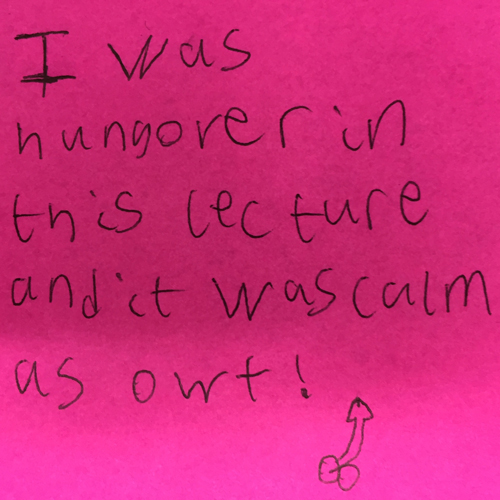 I was
hungover in
this lecture
and it was calm
as owt!